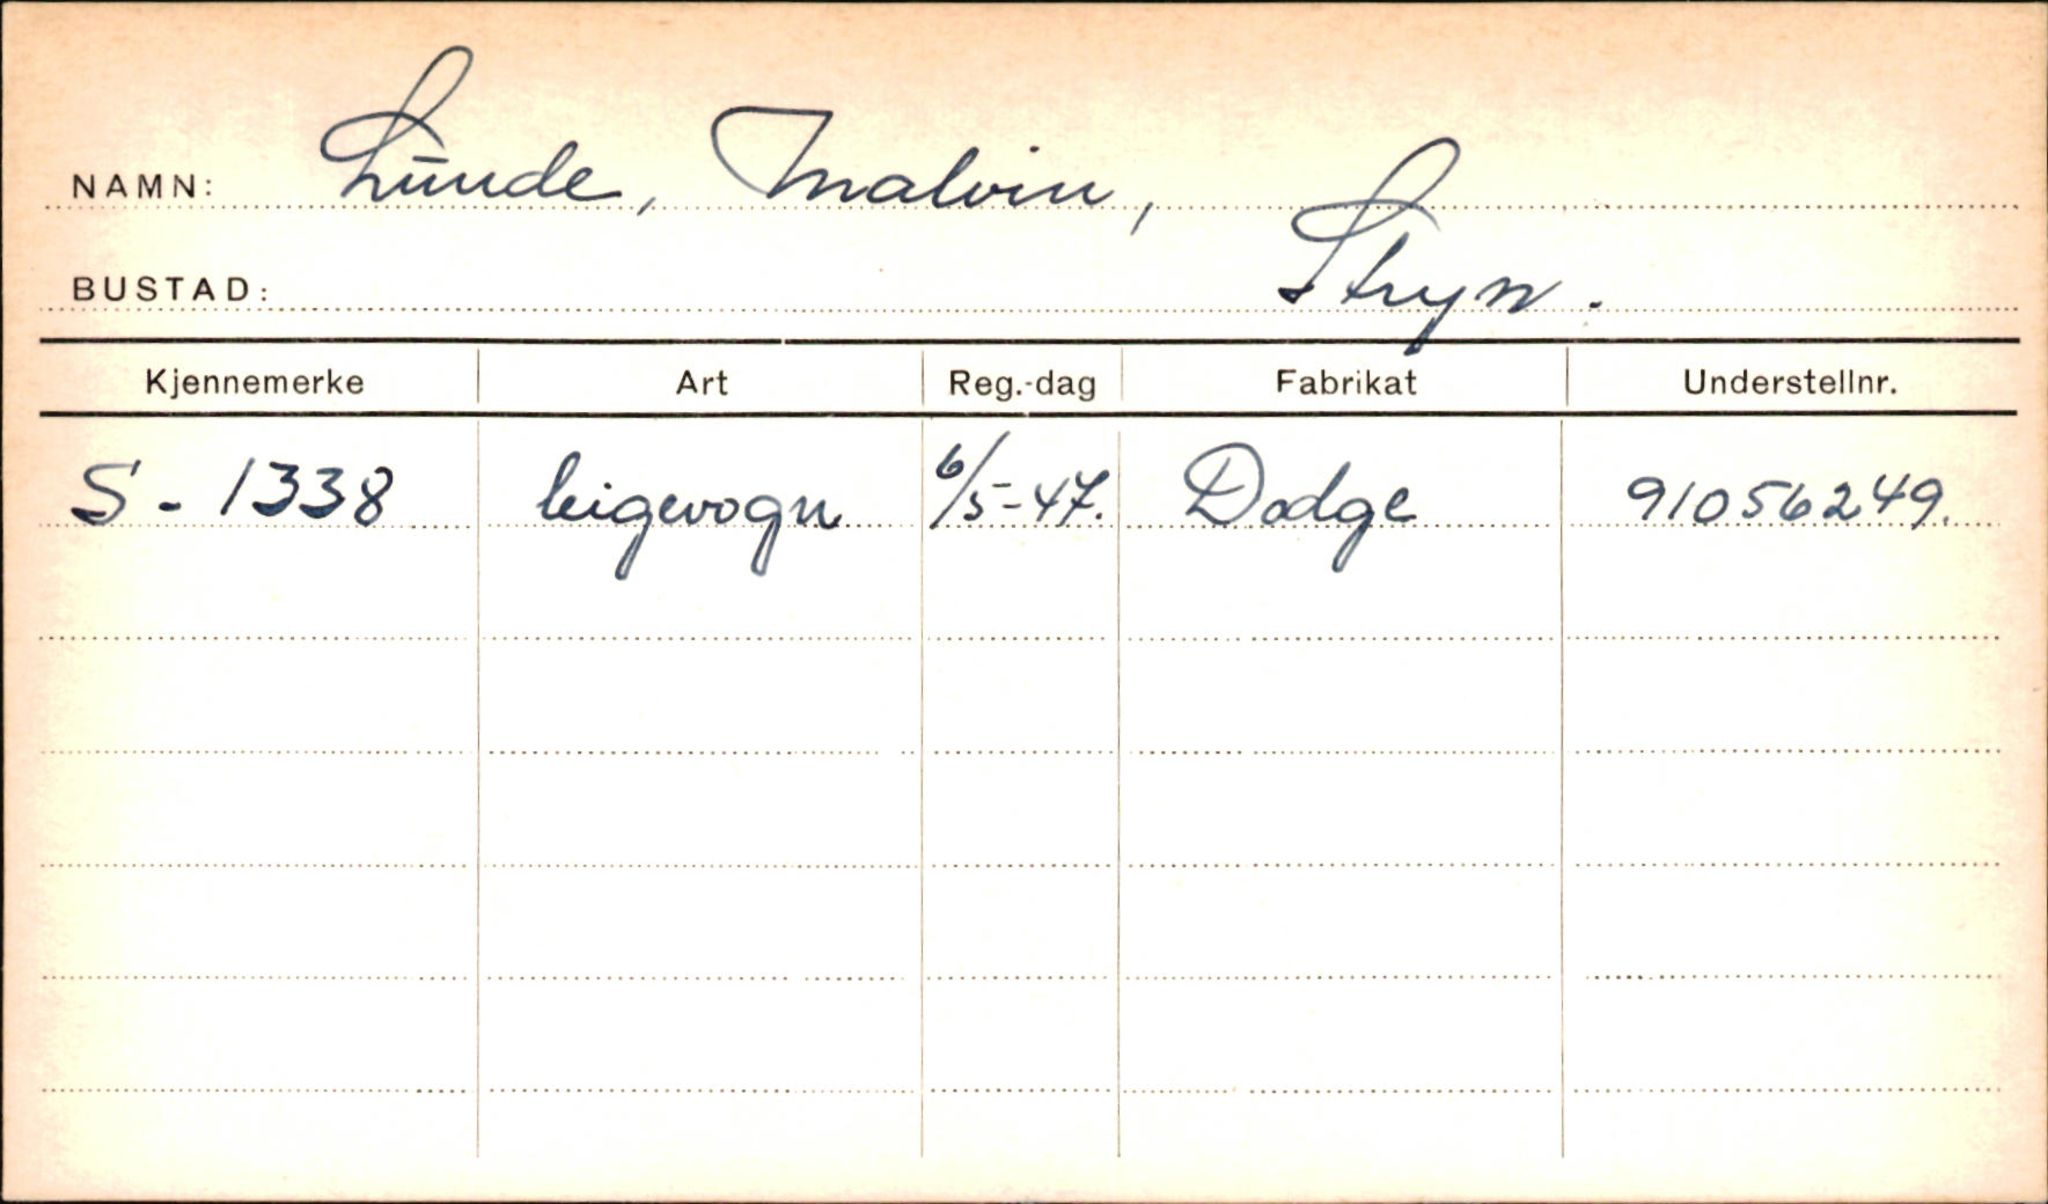 NAMN: Lunde, Malvin,
BUSTAD: Stryn.
Kjennemerke Art Reg.-dag Fabrikat Understellnr.
S - 1338 leigevogn 6/5-47. Dodge 91056249.